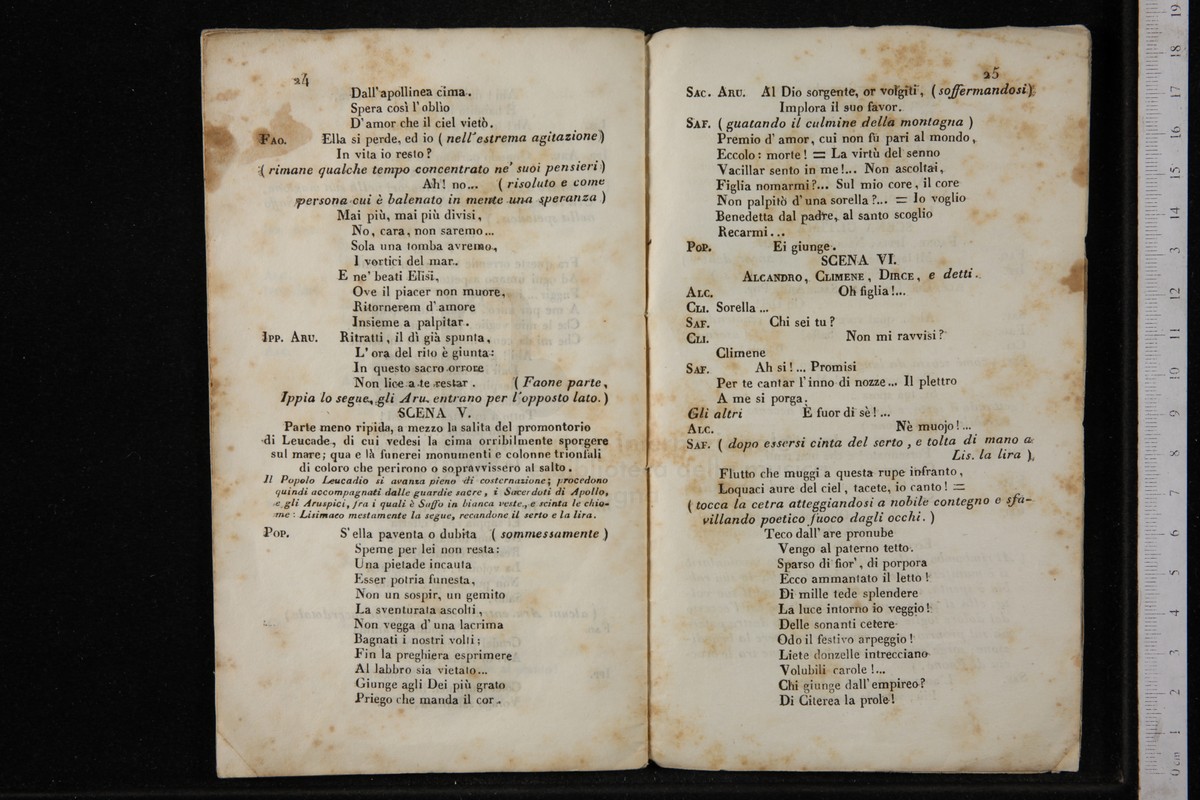 24
Dall' apollinea cima.
Spera così l' oblìo
D' amor che il ciel vietò.
Fao. Ella si perde, ed io ( nell'estrema agitazione )
In vita io resto?
( rimane qualche tempo concentrato ne' suoi pensieri )
Ah! no... ( risoluto e come
persona cui è balenato in mente una speranza )
Mai più, mai più divisi,
No, cara, non saremo...
Sola una tomba avremo,
I vortici del mar.
E ne' beati Elisi,
Ove il piacer non muore,
Ritornerem d' amore
Insieme a palpitar.
Ipp. Aru. Ritratti, il dì già spunta,
L' ora del rito è giunta:
In questo sacro orrore
Non lice a te restar. ( Faone parte,
Ippia lo segue, gli Aru. entrano per l'opposto lato. )
SCENA V.
Parte meno ripida, a mezzo la salita del promontorio
di Leucade, di cui vedesi la cima orribilmente sporgere
sul mare; qua e là funerei monumenti e colonne trionfali
di coloro che perirono o sopravvissero al salto.
Il Popolo Leucadio si avanza pieno di costernazione; procedono
quindi accompagnati dalle guardie sacre, i Sacerdoti di Apollo,
e gli Aruspici, fra i quali è Saffo in bianca veste, e scinta le chio-
me: Lisimaco mestamente la segue, recandone il serto e la lira.
Pop. S' ella paventa o dubita ( sommessamente )
Speme per lei non resta:
Una pietade incauta
Esser potria funesta,
Non un sospir, un gemito
La sventurata ascolti,
Non vegga d' una lacrima
Bagnati i nostri volti;
Fin la preghiera esprimere
Al labbro sia vietato...
Giunge agli Dei più grato
Priego che manda il cor.
25
Sac. Aru. Al Dio sorgente, or volgiti, ( soffermandosi )
Implora il suo favor.
Saf. ( guatando il culmine della montagna )
Premio d' amor, cui non fu pari al mondo,
Eccolo: morte! = La virtù del senno
Vacillar sento in me!... Non ascoltai,
Figlia nomarmi?... Sul mio core, il core
Non palpitò d' una sorella?... = Io voglio
Benedetta dal padre, al santo scoglio
Recarmi...
Pop. Ei giunge.
SCENA VI.
Alcandro, Climene, Dirce, e detti.
Alc. Oh figlia!...
Cli. Sorella...
Saf. Chi sei tu?
Cli. Non mi ravvisi?
Climene
Saf. Ah si!... Promisi
Per te cantar l' inno di nozze... Il plettro
A me si porga.
Gli altri È fuor di sè!...
Alc. Nè muojo!...
Saf. ( dopo essersi cinta del serto, e tolta di mano a
Lis. la lira )
Flutto che muggi a questa rupe infranto,
Loquaci aure del ciel, tacete, io canto! =
( tocca la cetra atteggiandosi a nobile contegno e sfa-
villando poetico fuoco dagli occhi. )
Teco dall' are pronube
Vengo al paterno tetto.
Sparso di fior', di porpora
Ecco ammantato il letto!
Di mille tede splendere
La luce intorno io veggio!
Delle sonanti cetere
Odo il festivo arpeggio!
Liete donzelle intrecciano
Volubili carole!...
Chi giunge dall' empireo?
Di Citerea la prole!